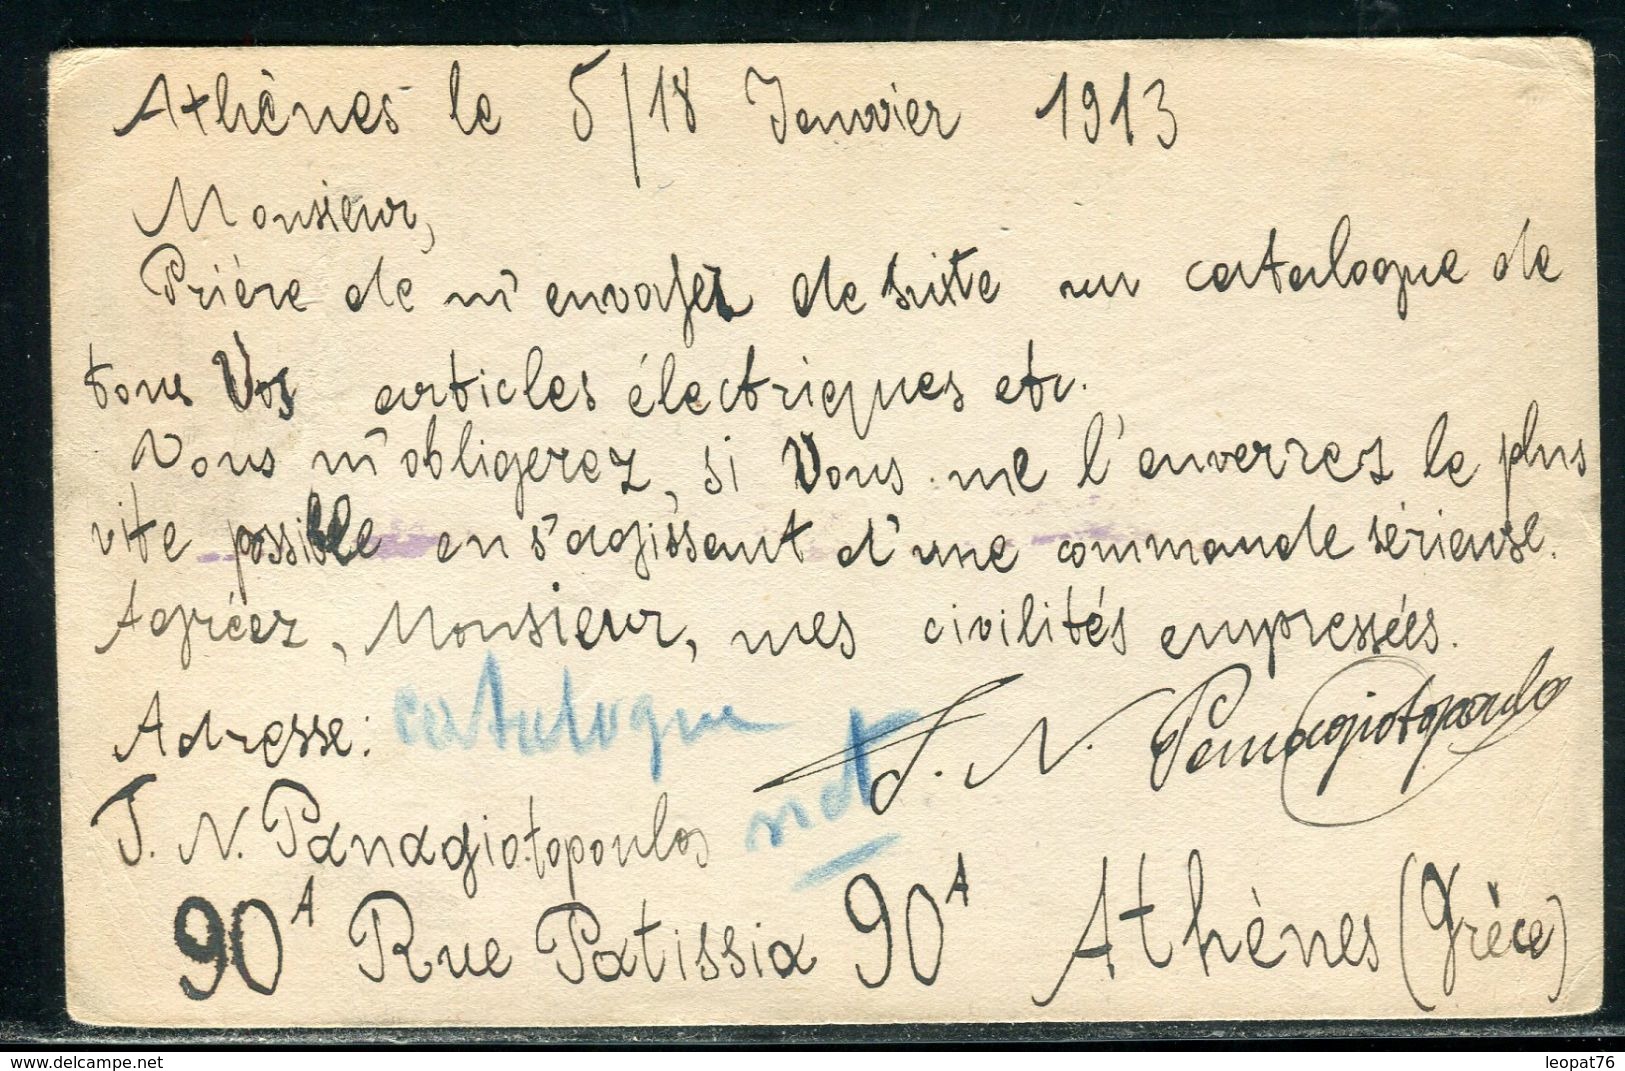 Athènes le 5/18 Janvier 1913
Monsieur,
Prière de m'envoyer de suite un catalogue de
tous Vos articles électriques etc.
Vous m'obligerez, si Vous me l'enverrez le plus
vite possible en s'agissant d'une commande sérieuse.
Agréez, Monsieur, mes civilités empressées.
Adresse: catalogue
J. N. Panagiotopoulo
J. N. Panagiotopoulos
90A Rue Patissia 90A Athènes (Grèce)
www.delcampe.net
leopat76